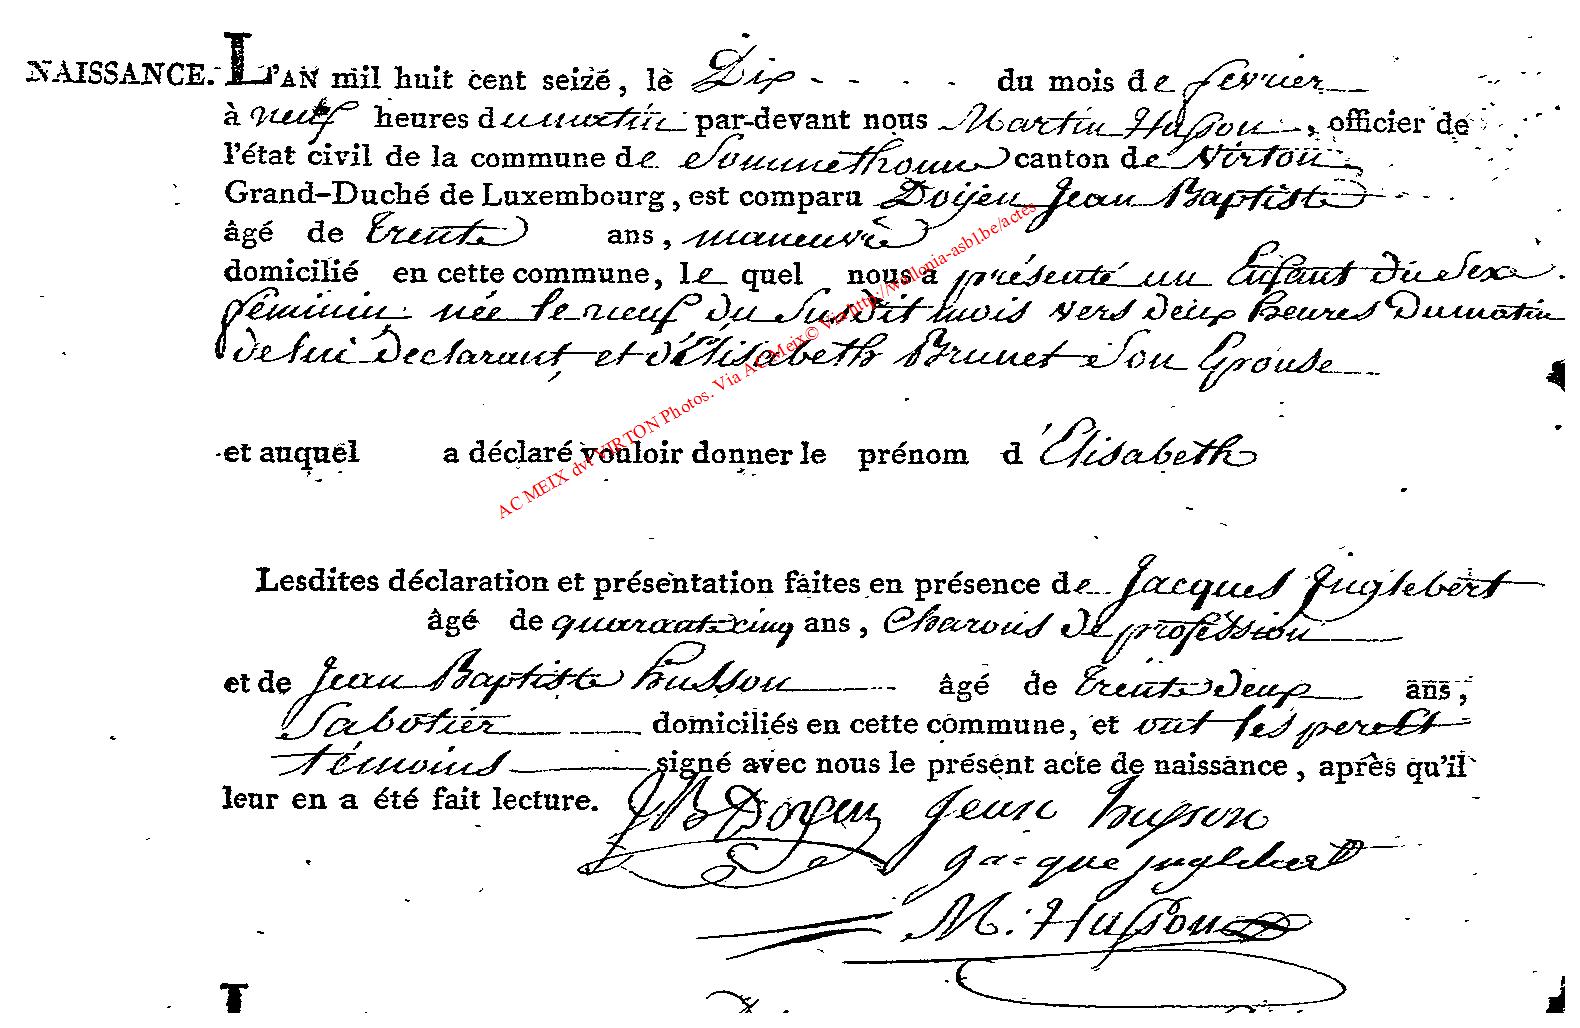 NAISSANCE. L'AN mil huit cent seize, le Dix - - - - du mois de fevrier
à neuf heures du matin par-devant nous Martin Husson, officier de
l'état civil de la commune de Sommethonne canton de Virton
Grand-Duché de Luxembourg, est comparu Doyen Jean Baptiste
âgé de trente ans, maneuvre
domicilié en cette commune, le quel nous a présenté un Enfant du Sexe
féminin née le neuf du Susdit mois vers deux heures Dumatin
de lui Declarant, et d'Elisabeth Brunet Son Epouse
et auquel a déclaré vouloir donner le prénom d'Elisabeth
Lesdites déclaration et présentation faites en présence de Jacques Inglebert
âgé de quarante cinq ans, Charons de profession
et de Jean Baptiste husson âgé de trente deux ans,
Sabotier domiciliés en cette commune, et ont les pere et
témoins signé avec nous le présent acte de naissance, après qu'il
leur en a été fait lecture. JB Doyen Jean husson
Jacque inglebert
M. Husson
AC MEIX dvt VIRTON Photos. Via AC Meix© Via http://wallonia-asbl.be/actes